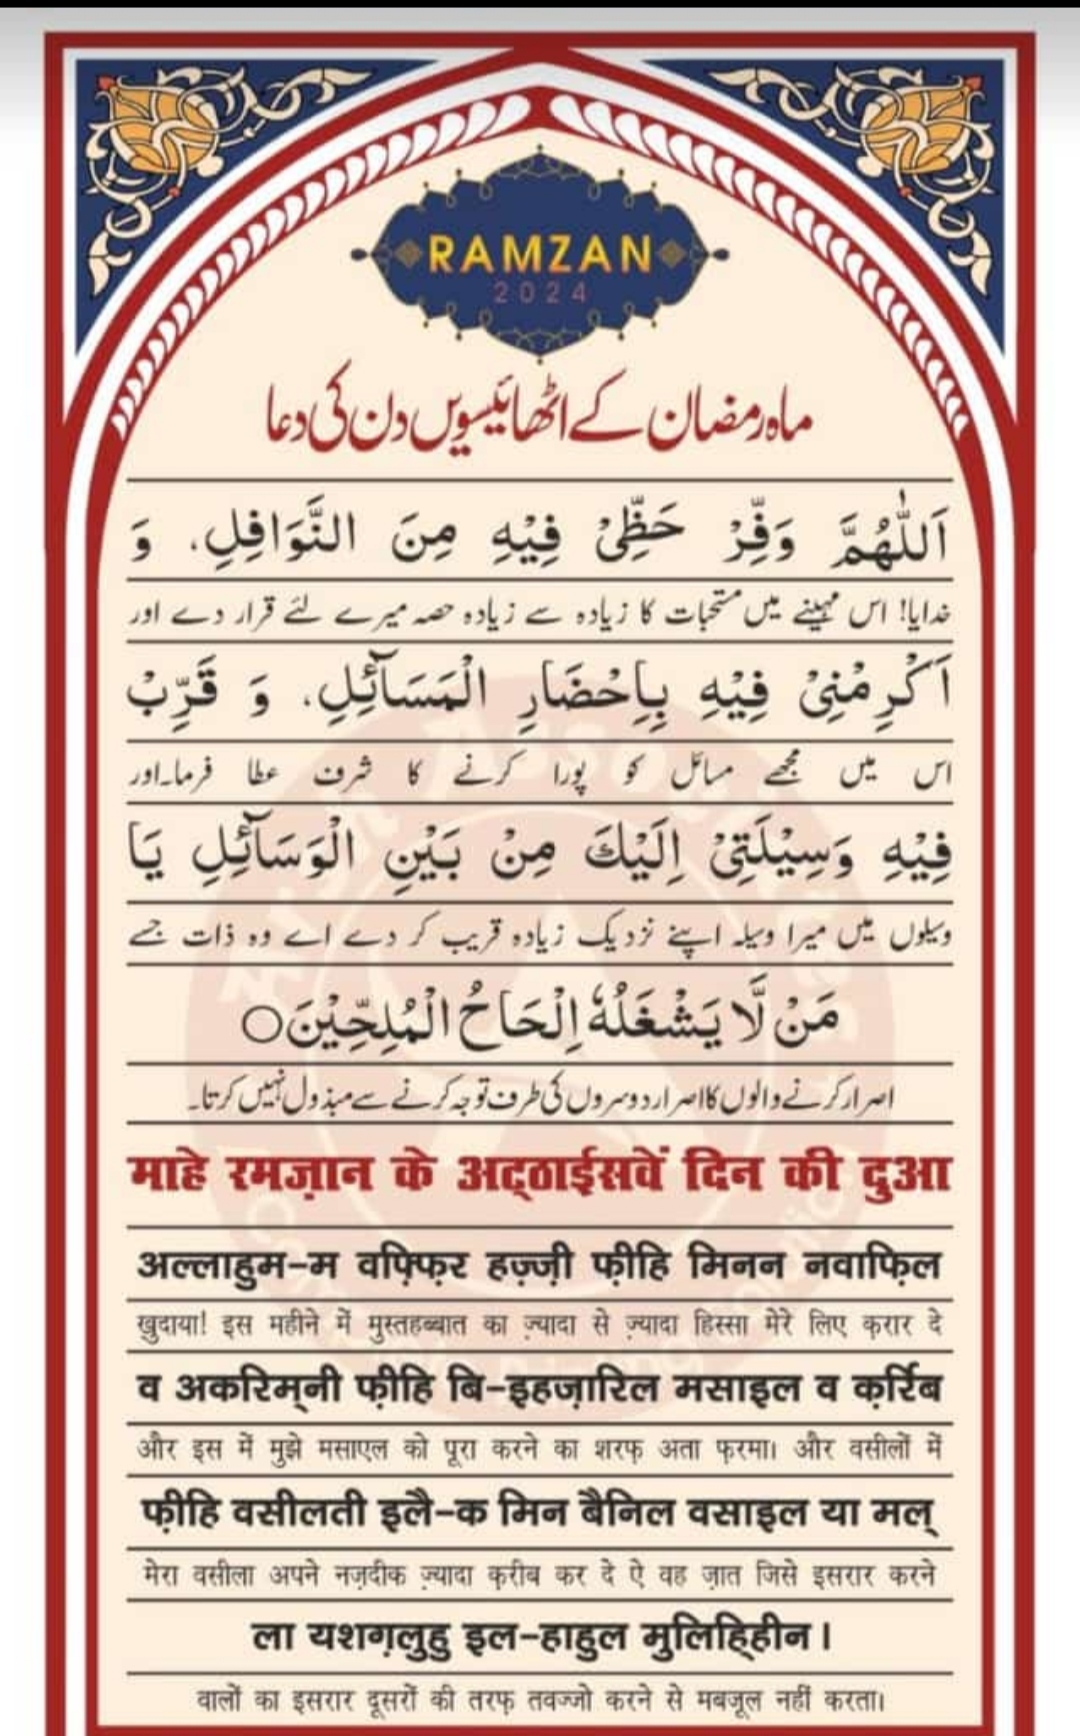 RAMZAN
2024
ماہ رمضان کے اٹھائیسویں دن کی دعا
اَللّٰهُمَّ وَفِّرْ حَظِّیْ فِیْهِ مِنَ النَّوَافِلِ، وَ
خدایا! اس مہینے میں مستحبات کا زیادہ سے زیادہ حصہ میرے لئے قرار دے اور
اَكْرِمْنِیْ فِیْهِ بِاِحْضَارِ الْمَسَآئِلِ، وَ قَرِّبْ
اس میں مجھے مسائل کو پورا کرنے کا شرف عطا فرما۔اور
فِیْهِ وَسِیْلَتِیْ اِلَیْكَ مِنْ بَیْنِ الْوَسَآئِلِ یَا
وسیلوں میں میرا وسیلہ اپنے نزدیک زیادہ قریب کر دے اے وہ ذات جسے
مَنْ لَّا یَشْغَلُهٗ اِلْحَاحُ الْمُلِحِّیْنَ○
اصرار کرنے والوں کا اصرار دوسروں کی طرف توجہ کرنے سے مبذول نہیں کرتا۔
माहे रमज़ान के अट्ठाईसवें दिन की दुआ
अल्लाहुम-म वफ़्फ़िर हज़्ज़ी फ़ीहि मिनन नवाफ़िल
ख़ुदाया! इस महीने में मुस्तहब्बात का ज़्यादा से ज़्यादा हिस्सा मेरे लिए क़रार दे
व अकरिम्नी फ़ीहि बि-इहज़ारिल मसाइल व क़र्रिब
और इस में मुझे मसाएल को पूरा करने का शरफ़ अता फ़रमा। और वसीलों में
फ़ीहि वसीलती इलै-क मिन बैनिल वसाइल या मल्
मेरा वसीला अपने नज़दीक ज़्यादा क़रीब कर दे ऐ वह ज़ात जिसे इसरार करने
ला यशग़लुहु इल-हाहुल मुलिह्हीन।
वालों का इसरार दूसरों की तरफ़ तवज्जो करने से मबजूल नहीं करता।